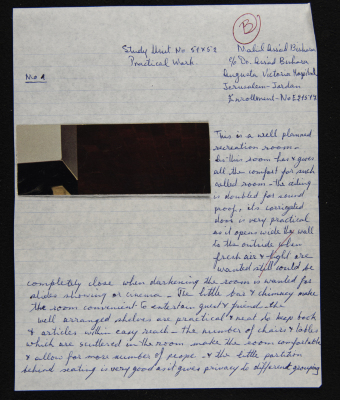 B
Study Unit No. 51 & 52
Practical Work
Augusta Victoria Hospital
Jerusalem - Jordan
No 1
This is a well planned
recreation room -
As this room has & gives
all the comfort for such
called room - the ceiling
is doubled for sound
proof, its corrigated
door is very practical
as it opens wide the wall
to the outside when
fresh air & light are
wanted still could be
completely close when darkening the room is wanted for
slides showing or cinema - The little bar & chimney make
the room convenient to entertain guest & friends - the
well arranged shelves are practical & neat to keep book
& articles within easy reach - the number of chairs & tables
which are scattered in the room make the room comfortable
& allow for more number of people - & the little partition
behind seating is very good as it gives privacy to different grouping